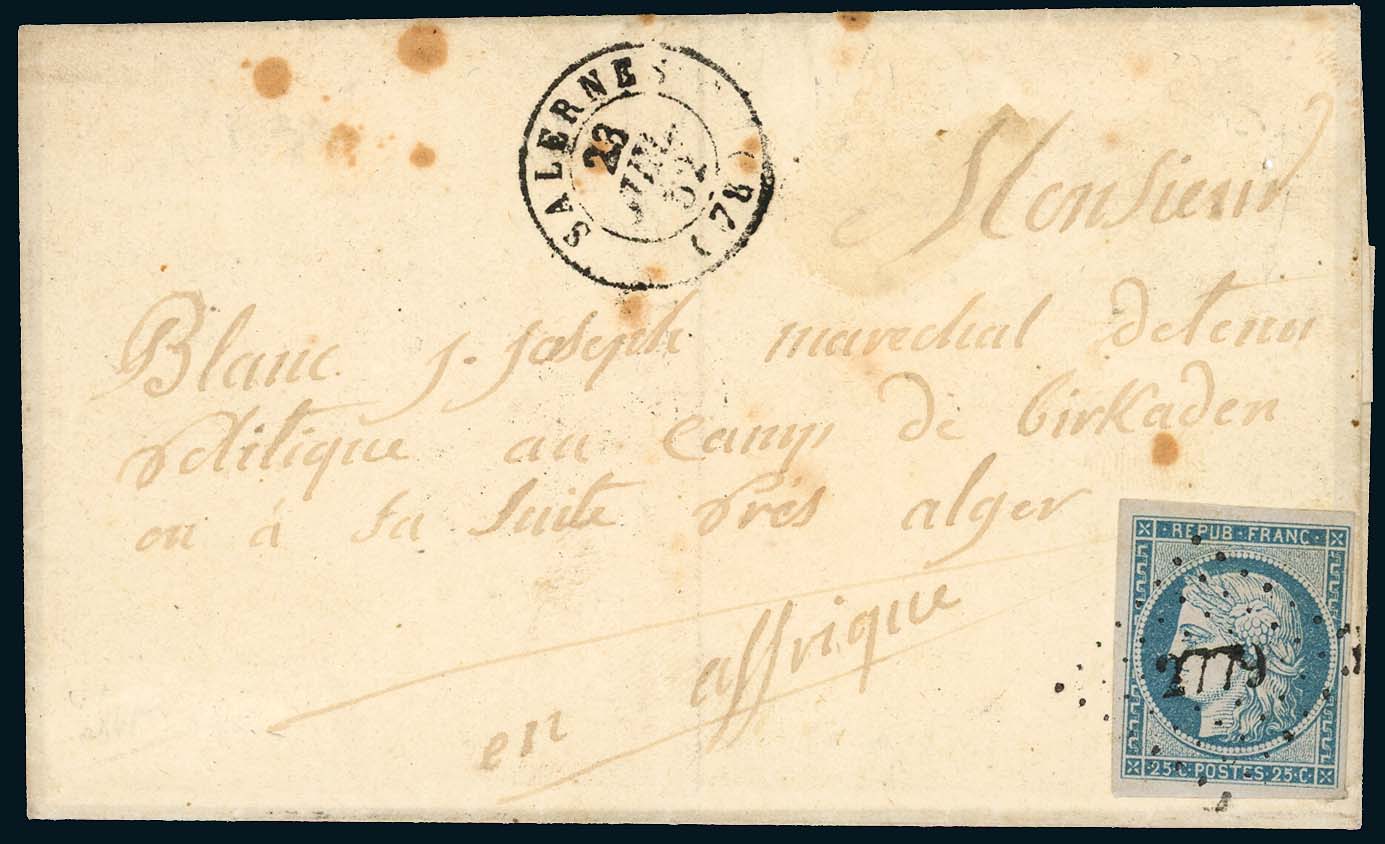 SALERNES
23
JUIL
52
(78)
Monsieur
Blanc j. joseph marechal detenu
politique au camp de birkaden
ou à sa suite près alger
en affrique
REPUB FRANC
2779
25 C POSTES 25 C